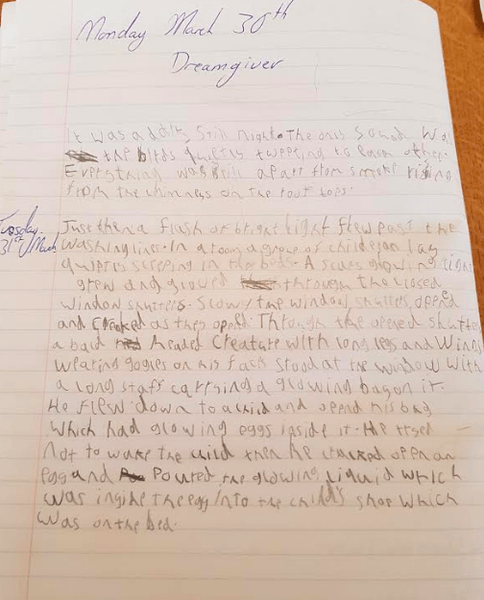 Monday March 30th
Dreamgiver
It was a dark still night. The only sound wa
the birds quietly tweeting to each other.
Everything was still apart from smoke rising
from the chimneys on the roof tops.
Tuesday
31st March
Just then a flash of bright light flew past the
washing line. In a room a group of children lay
sleeping in the beds. A glowing light
grew and glowed through the closed
window shutters. Slowly the window shutters opened
and creaked as they opened. Through the opened shutte
a bald headed creature with long legs and wings
wearing gogles on his face stood at the window with
a long staff carrying a glowing bag on it.
He flew down to a child and opend his bag
which had glowing eggs inside it. He tryed
not to wake the child then he cracked open an
egg and poured the glowing liquid which
was inside the egg into the child's shoe which
was on the bed.